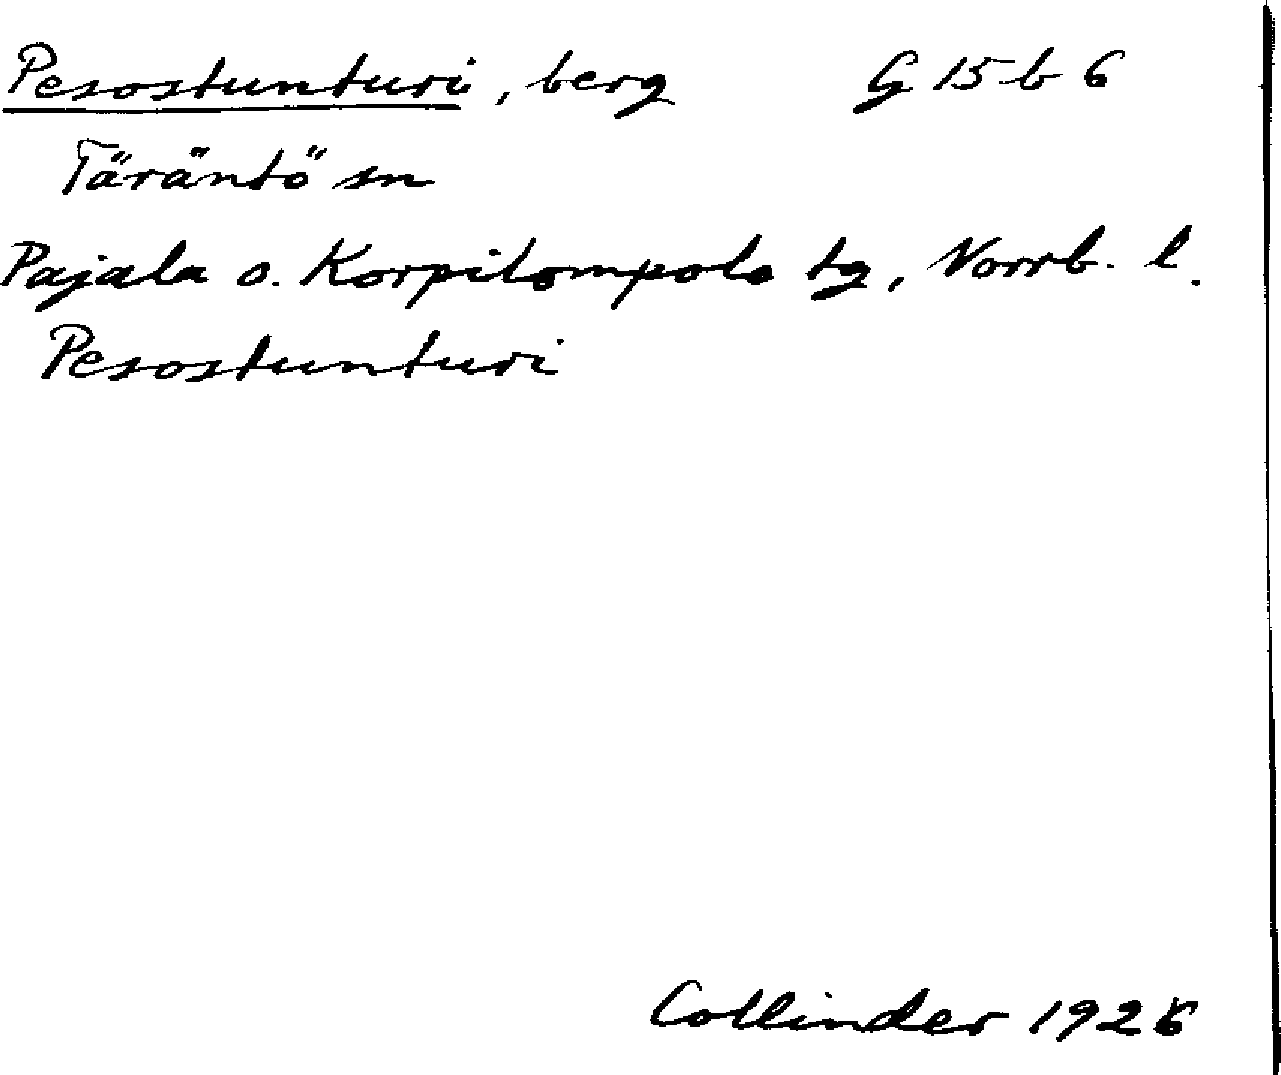 Pesostunturi, berg G 15 b 6
Täräntö sn
Pajala o. Korpilompolo tg, Norrb. l.
Pesostunturi
Collinder 1926